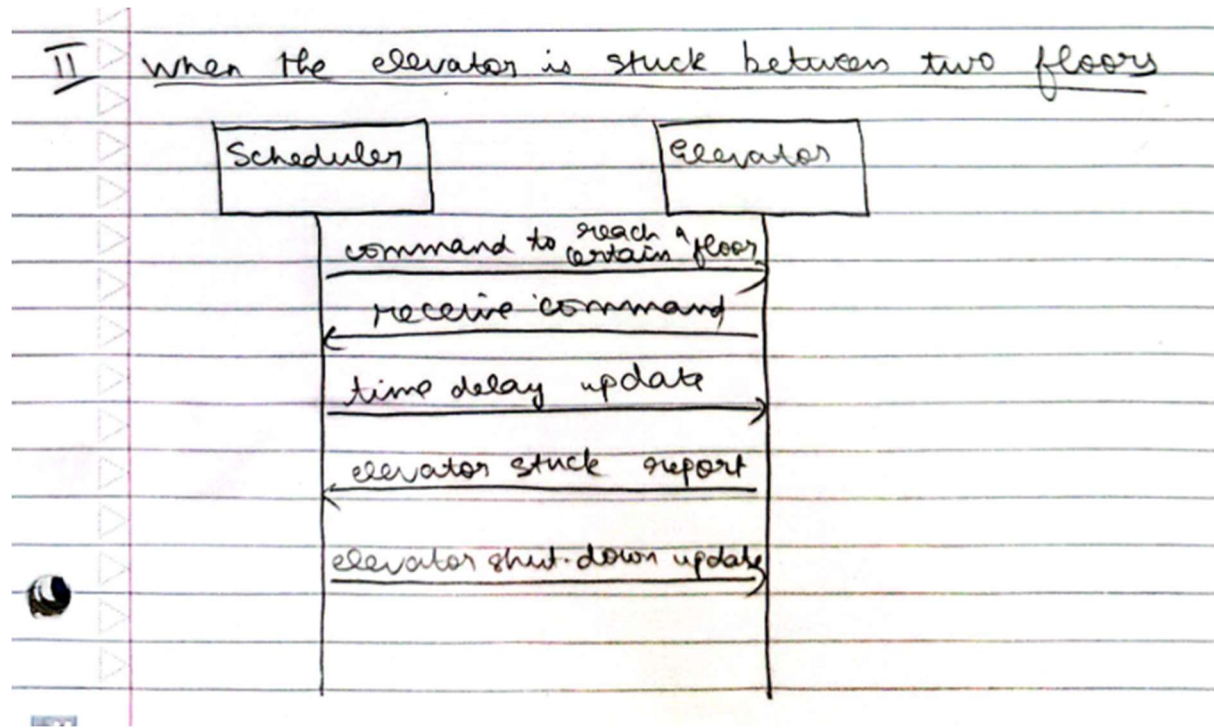 II when the elevator is stuck between two floors
Scheduler
Elevator
command to reach a certain floor
receive command
time delay update
elevator stuck report
elevator shut-down update